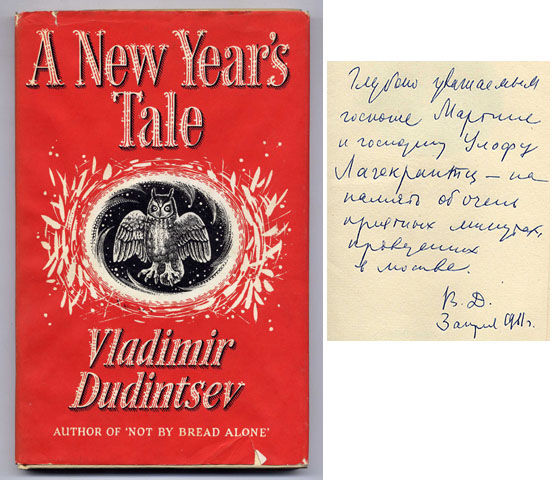 A New Year's
Tale
Vladimir
Dudintsev
AUTHOR OF 'NOT BY BREAD ALONE'
Глубоко уважаемым
госпоже Мартине
и господину Улофу
Лагекрантц — на
память об очень
приятных минутах,
проведенных
в москве.
В. Д.
3